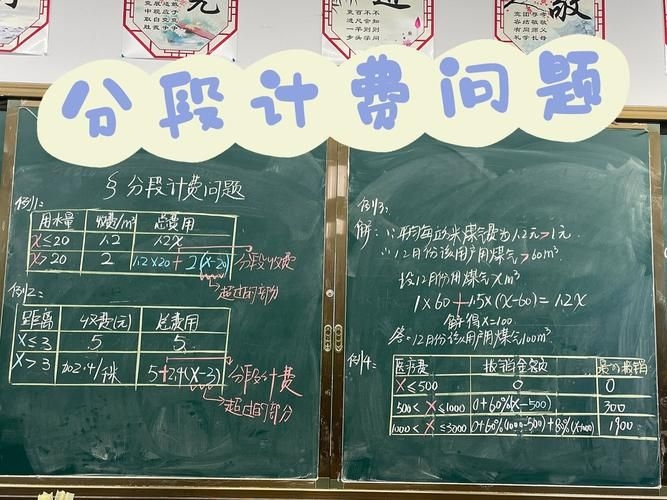 亢
敬
分段计费问题
§分段计费问题
例1:
用水量 收费/m³ 总费用
x≤20 1.2 1.2x
x>20 2 1.2×20+2(x-20) 分段收费
超过的部分
例2:
距离 收费(元) 总费用
x≤3 5 5
x>3 加2.4/千米 5+2.4(x-3) 分段计费
超过的部分
例3:
解:∵平均每立方米煤气费为1.2元>1元
∴12月份该用户用煤气>60m³
设12月份用煤气xm³
1×60+1.5×(x-60)=1.2x
解得x=100
答:12月份该用户用煤气100m³
例4:
医疗费 报销金额 最多报销
x≤500 0 0
500<x≤1000 0+60%(x-500) 300
1000<x≤3000 0+60%(1000-500)+80%(x-1000) 1900